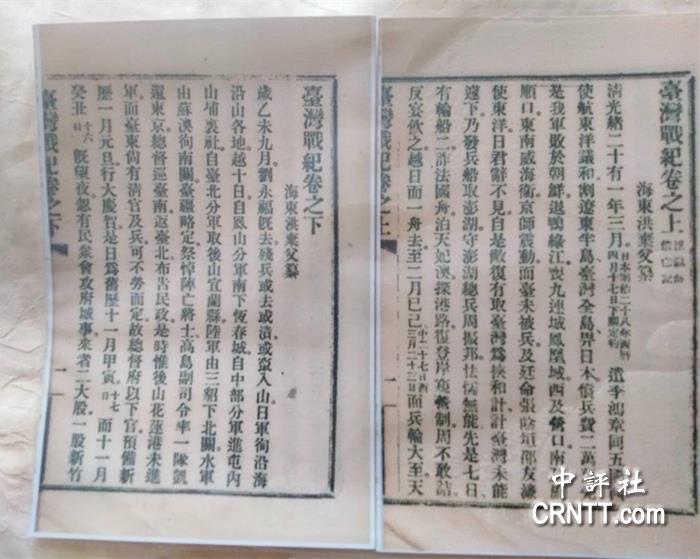 臺灣戰紀卷之上
海東洪棄父纂
清光緒二十有一年三月日本明治二十八年西曆四月十七日下關定約遣李鴻章同五
使航東洋議和割遼東半島臺灣全島界日本償兵費二萬萬
是我軍敗於朝鮮退鴨綠江喪九連城鳳凰城西及營口南
順口東南威海衛京師震動而臺未被兵及廷命張蔭垣邵友濂
使東洋日君辭不見自是敵復有取臺灣為挾和計計臺灣未能
遽下乃發兵船取澎湖守澎湖總兵周振邦怯懦無能先是七日
有輪船二詐法國舟泊天妃澳探港路復登岸窺制周不敢詰
反宴飲之越日面一舟去至二月己巳中二十七日西三月二十三日面兵輪大至天
臺灣戰紀卷之上
一
臺灣戰紀卷之下
海東洪棄父纂
歲乙未九月劉永福既去殘兵或去或潰或竄入山日軍徇沿海
沿山各地越十日自鳳山分軍南下恆春城自中部分軍進屯內
山埔裏社自臺北分軍取後山宜蘭縣陸軍由三貂下北關水軍
由蘇澳徇南關臺疆略定祭悼陣亡將士高島副司令率一隊凱
還東京總督巡臺南返臺北布告民政是時惟後山花蓮港未進
軍而臺東尚有清官及兵可不勞而定故總督府以下官預備新
曆一月元旦行大慶賞是日為舊曆十一月甲寅十七日而十一月
癸丑十六日既望夜忽有民眾會攻府城事來者二大股一股新竹
臺灣戰紀卷之下
一
中評社
CRNTT.com